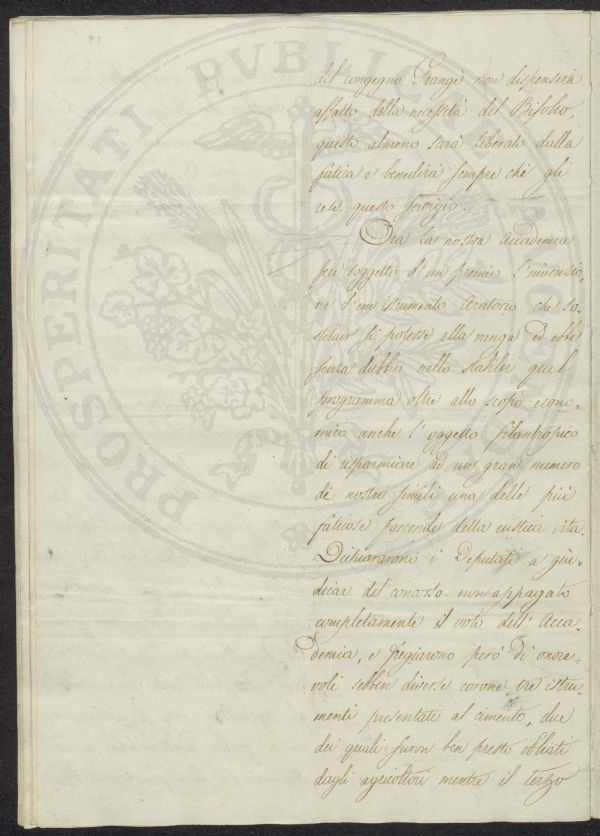 del congegno Grangé non dispenserà
affatto dalla necessità del Bifolco,
questo almeno sarà liberato dalla
fatica e benedirà sempre chi gli
rese questo servigio.
Ora la nostra Accademia
feù soggetto d'un premio l'invenzio-
ne d'un istrumento Aratorio che so-
stituir si potesse alla vanga ed ebbe
senza dubbio nello stabilir quel
programma oltre allo scopo econo-
mico anche l'oggetto filantropico
di risparmiare ad un gran numero
di nostri simili una delle più
faticose faccende della rustica vita.
Dichiararono i Deputati a giu-
dicar del concorso non appagato
completamente il voto dell'Acca-
demia, e fregiarono però di onore-
voli sebben diverse corone tre istru-
menti presentati al cimento, due
dei quali furon ben presto obliati
dagli agricoltori mentre il terzo
PROSPERITATI PVBLICAE